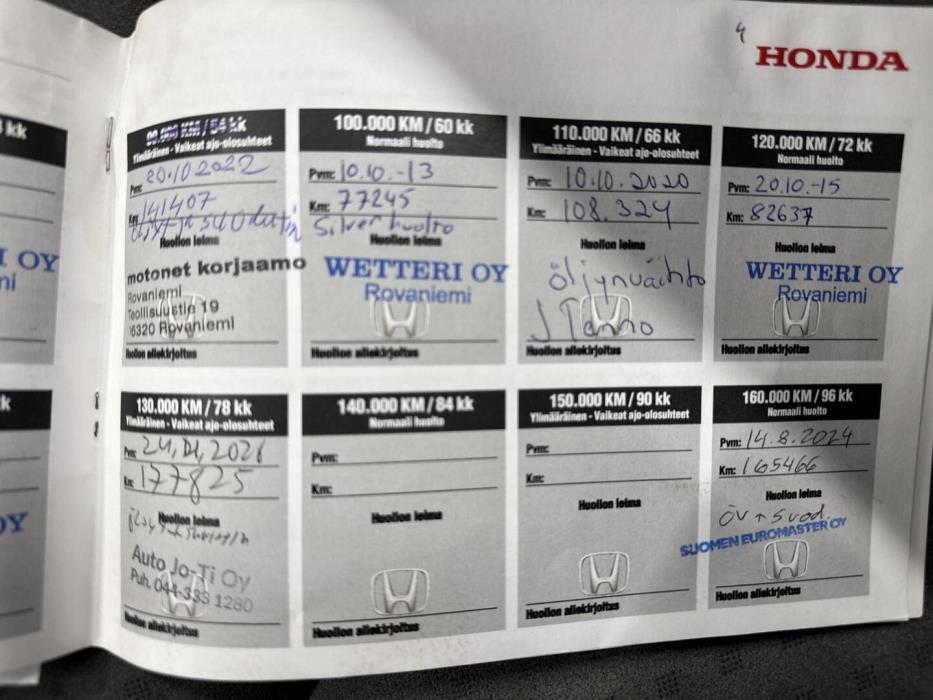 4
HONDA
kk
90.000 KM / 54 kk
Ylimääräinen - Vaikeat ajo-olosuhteet
Pvm: 20.10 2022
Km: 141407
Huollon leima
motonet korjaamo
Rovaniemi
Teollisuustie 19
96320 Rovaniemi
Huollon allekirjoitus
100.000 KM / 60 kk
Normaali huolto
Pvm: 10.10.-13
Km: 77245
Silverhuolto
Huollon leima
WETTERI OY
Rovaniemi
Huollon allekirjoitus
110.000 KM / 66 kk
Ylimääräinen - Vaikeat ajo-olosuhteet
Pvm: 10.10.2020
Km: 108.324
Huollon leima
öljynvaihto
Huollon allekirjoitus
120.000 KM / 72 kk
Normaali huolto
Pvm: 20.10.-15
Km: 82637
Huollon leima
WETTERI OY
Rovaniemi
Huollon allekirjoitus
I OY
ni
k
OY
130.000 KM / 78 kk
Ylimääräinen - Vaikeat ajo-olosuhteet
Pvm:
Km: 177825
Huollon leima
Auto Jo-Ti Oy
Puh. 044-333 1280
Huollon allekirjoitus
140.000 KM / 84 kk
Normaali huolto
Pvm:
Km:
Huollon leima
Huollon allekirjoitus
150.000 KM / 90 kk
Ylimääräinen - Vaikeat ajo-olosuhteet
Pvm:
Km:
Huollon leima
Huollon allekirjoitus
160.000 KM / 96 kk
Normaali huolto
Pvm: 14.8.2024
Km: 165466
Huollon leima
öv + suod.
SUOMEN EUROMASTER OY
Huollon allekirjoitus